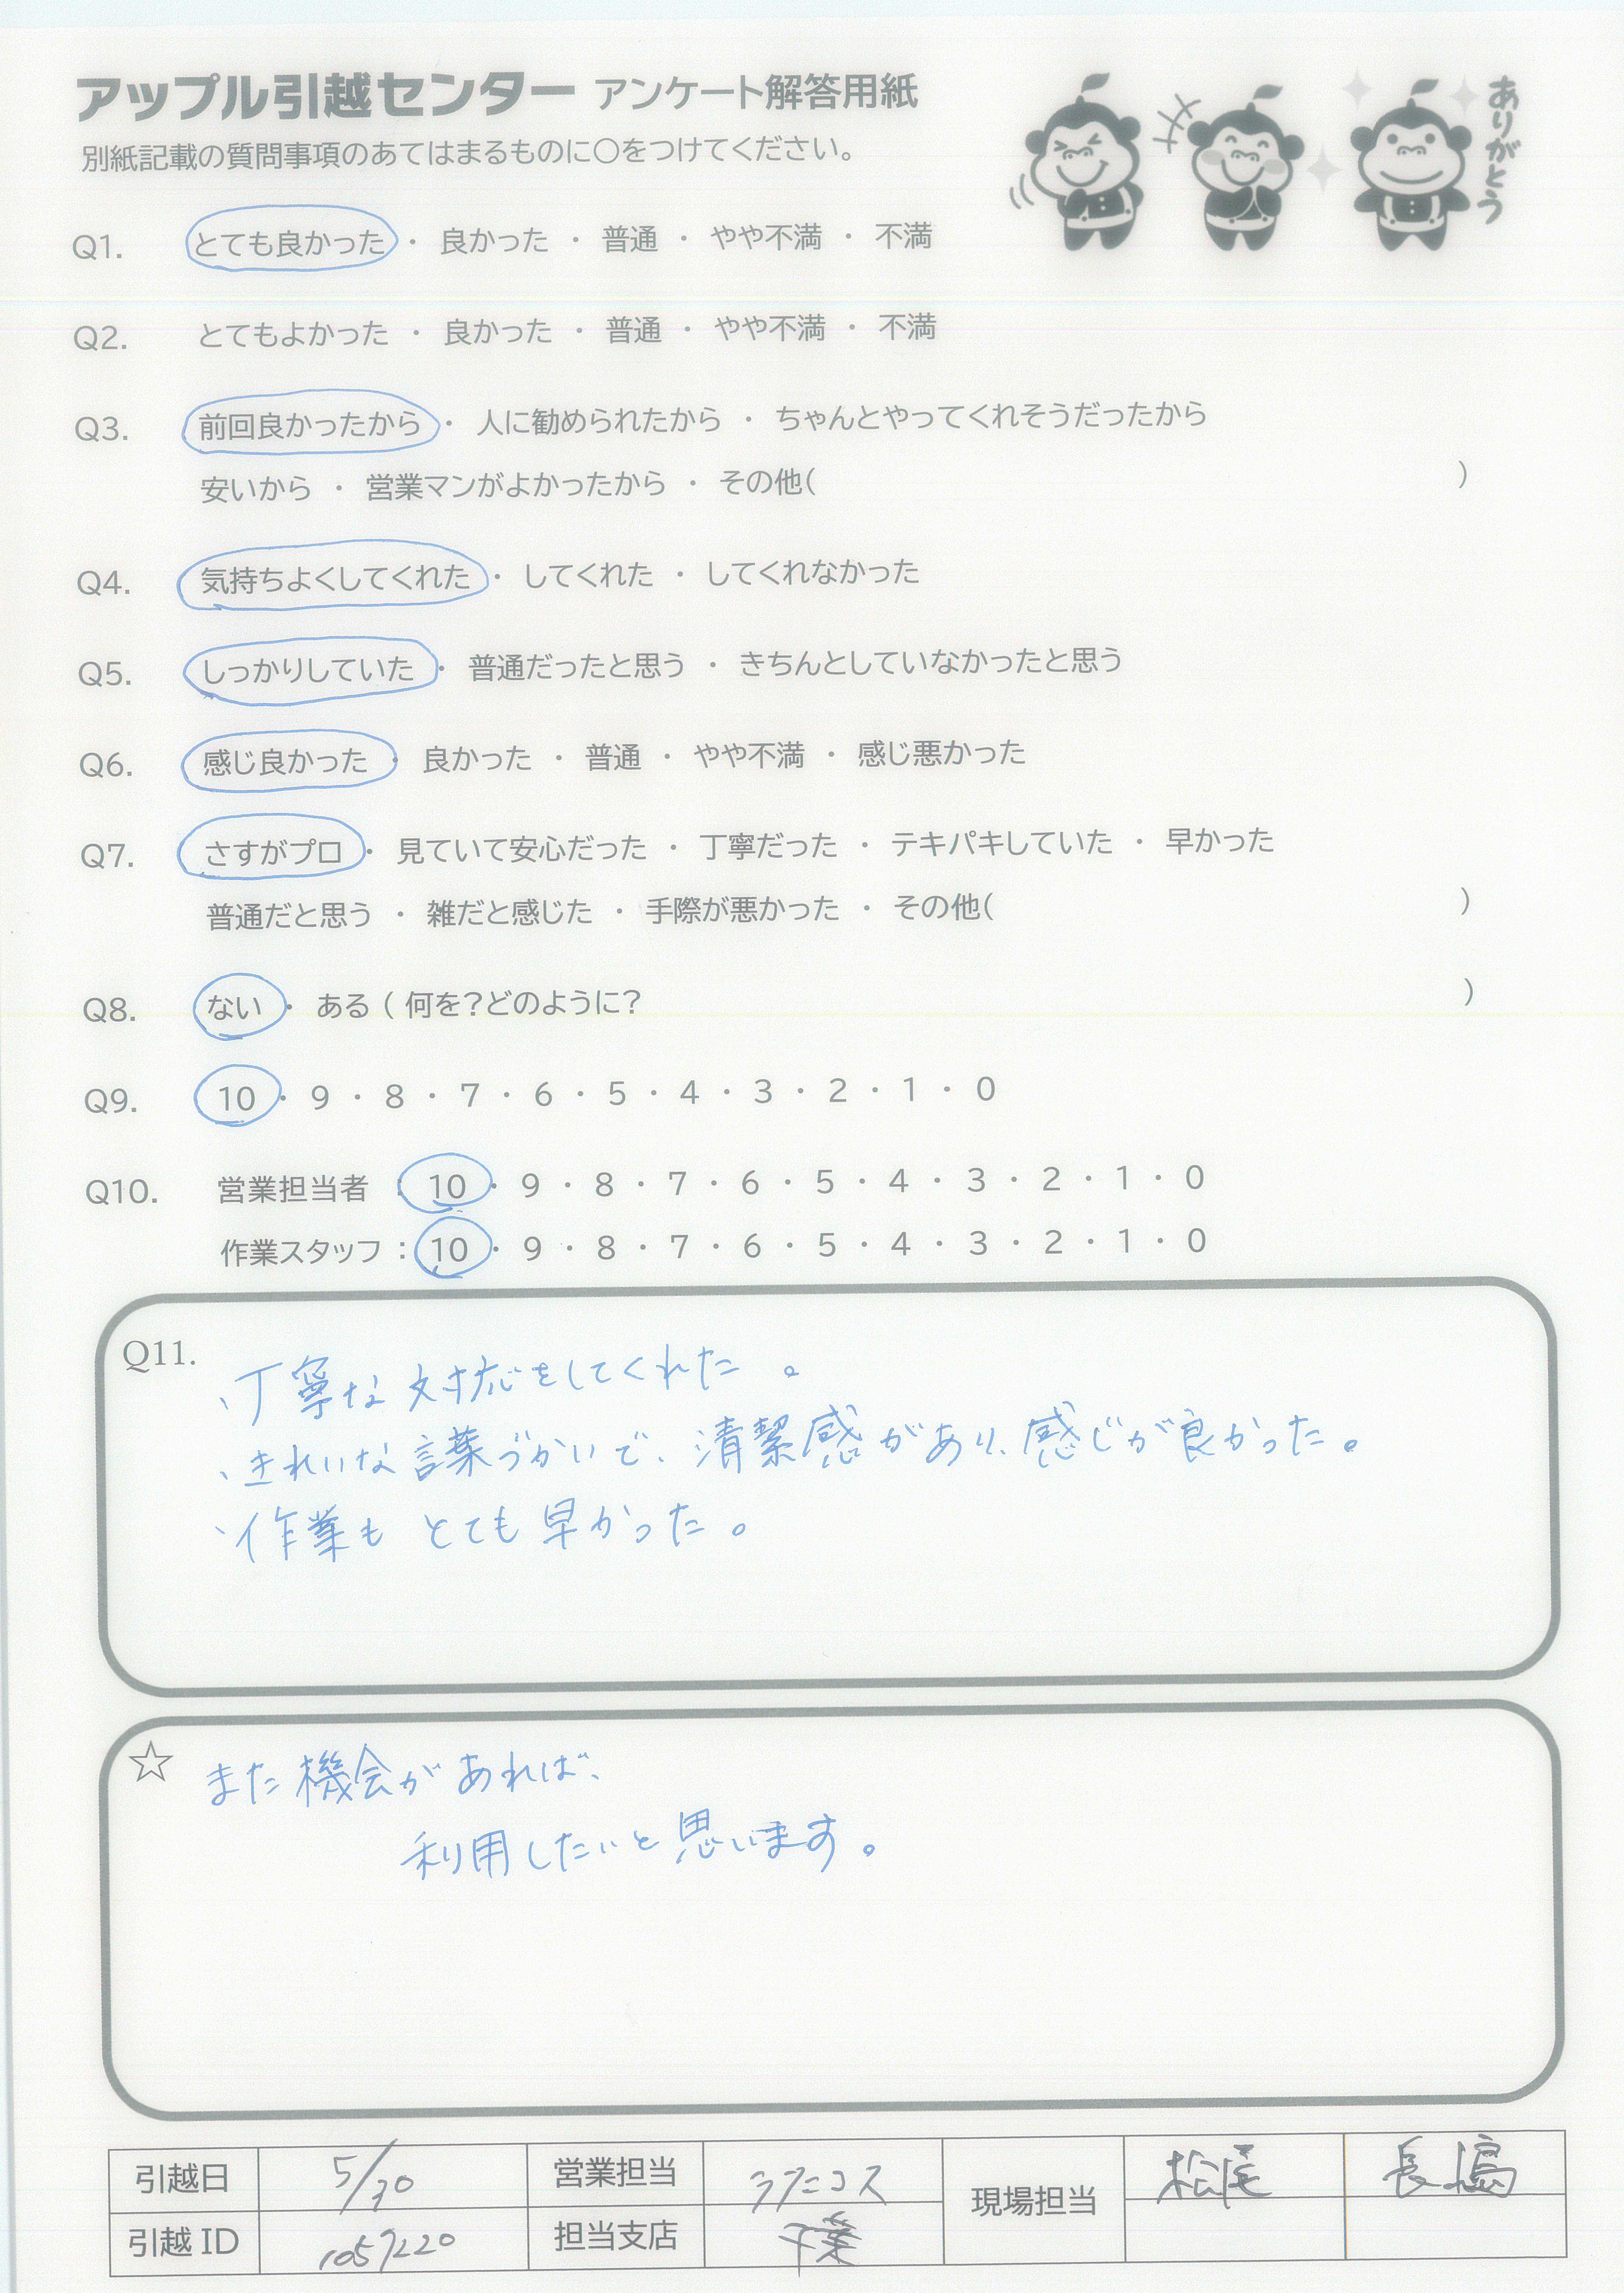 アップル引越センター アンケート解答用紙
ありがとう
別紙記載の質問事項のあてはまるものに○をつけてください。
Q1. とても良かった ・ 良かった ・ 普通 ・ やや不満 ・ 不満
Q2. とてもよかった ・ 良かった ・ 普通 ・ やや不満 ・ 不満
Q3. 前回良かったから ・ 人に勧められたから ・ ちゃんとやってくれそうだったから
安いから ・ 営業マンがよかったから ・ その他( )
Q4. 気持ちよくしてくれた ・ してくれた ・ してくれなかった
Q5. しっかりしていた ・ 普通だったと思う ・ きちんとしていなかったと思う
Q6. 感じ良かった ・ 良かった ・ 普通 ・ やや不満 ・ 感じ悪かった
Q7. さすがプロ ・ 見ていて安心だった ・ 丁寧だった ・ テキパキしていた ・ 早かった
普通だと思う ・ 雑だと感じた ・ 手際が悪かった ・ その他( )
Q8. ない ・ ある ( 何を?どのように? )
Q9. 10 ・ 9 ・ 8 ・ 7 ・ 6 ・ 5 ・ 4 ・ 3 ・ 2 ・ 1 ・ 0
Q10. 営業担当者 : 10 ・ 9 ・ 8 ・ 7 ・ 6 ・ 5 ・ 4 ・ 3 ・ 2 ・ 1 ・ 0
作業スタッフ : 10 ・ 9 ・ 8 ・ 7 ・ 6 ・ 5 ・ 4 ・ 3 ・ 2 ・ 1 ・ 0
Q11. 、丁寧な対応をしてくれた 。
、きれいな言葉づかいで、清潔感があり、感じが良かった。
、作業も とても早かった。
☆ また機会があれば、
利用したいと思います。
引越日 5/30 営業担当 現場担当 松尾
引越 ID 1057220 担当支店 千葉